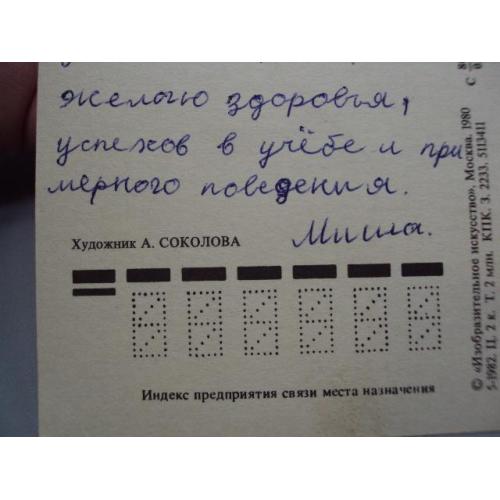 желаю здоровья,
успехов в учёбе и при
мерного поведения.
Миша.
Художник А. СОКОЛОВА
Индекс предприятия связи места назначения
© «Изобразительное искусство». Москва. 1980
5-1982. Ц. 2 к. Т. 2 млн. КПК. З. 2233. 5113411